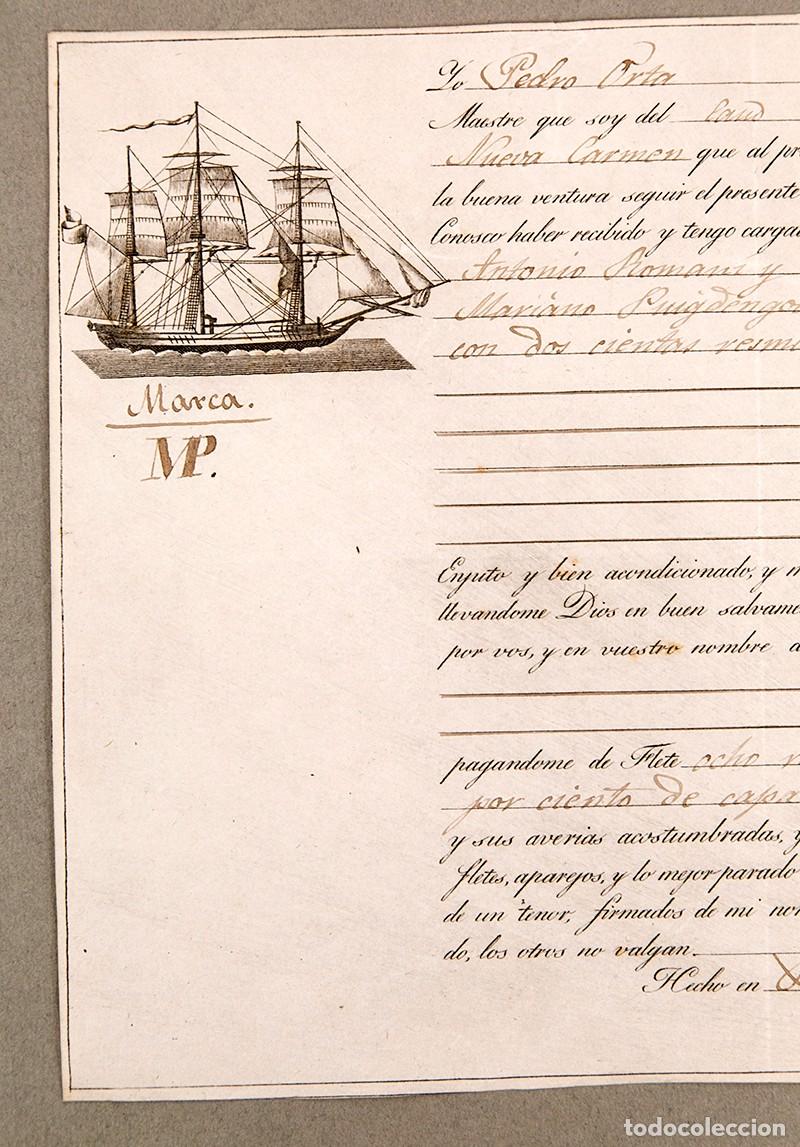 Yo Pedro Orta
Maestre que soy del laud
Nueva Carmen que al pre
la buena ventura seguir el presente
Conosco haber recibido y tengo cargad
Antonio Romani y
Mariano Puigdengo
con dos cientas resm
Marca.
MP.
Enjuto y bien acondicionado, y m
llevandome Dios en buen salvame
por vos, y en vuestro nombre a
pagandome de Flete ocho r
por ciento de capa
y sus averias acostumbradas, y
fletes, aparejos, y lo mejor parado
de un tenor, firmados de mi nom
do, los otros no valgan.
Hecho en
todocoleccion